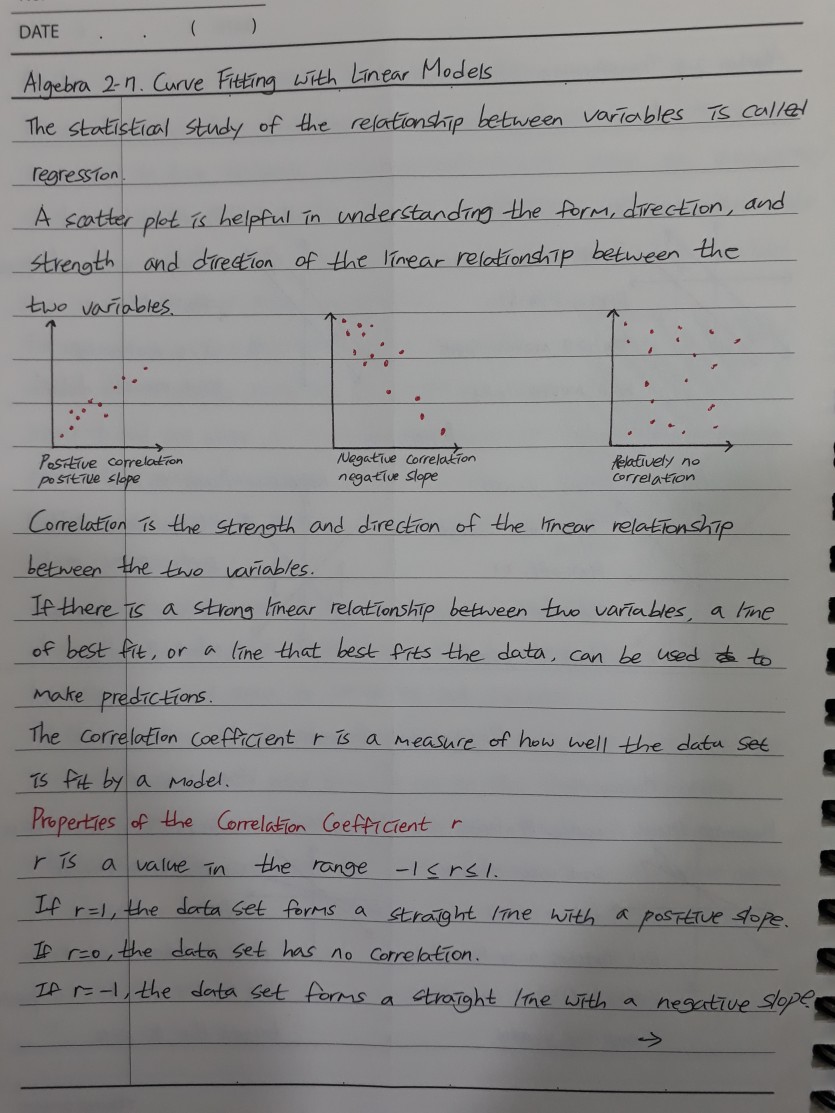 DATE . . ( )
Algebra 2-7. Curve Fitting with Linear Models
The statistical study of the relationship between variables is called
regression.
A scatter plot is helpful in understanding the form, direction, and
strength and direction of the linear relationship between the
two variables.
Positive correlation
positive slope
Negative correlation
negative slope
Relatively no
correlation
Correlation is the strength and direction of the linear relationship
between the two variables.
If there is a strong linear relationship between two variables, a line
of best fit, or a line that best fits the data, can be used to
make predictions.
The correlation coefficient r is a measure of how well the data set
is fit by a model.
Properties of the Correlation Coefficient r
r is a value in the range -1 ≤ r ≤ 1.
If r=1, the data set forms a straight line with a positive slope.
If r=0, the data set has no correlation.
If r=-1, the data set forms a straight line with a negative slope.
→